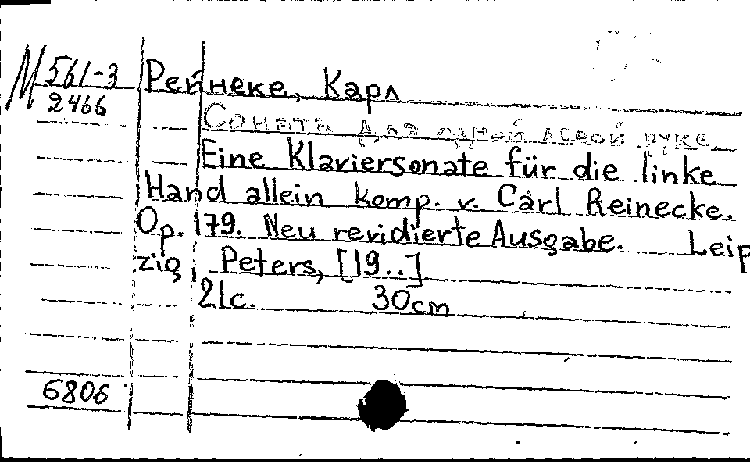 М 561-3
2466
Рейнеке, Карл
Соната для одной левой руке
Eine Klaviersonate für die linke
Hand allein komp. v. Carl Reinecke.
Op. 179. Neu revidierte Ausgabe. Leip
zig, Peters, [19..]
21c. 30cm
6806